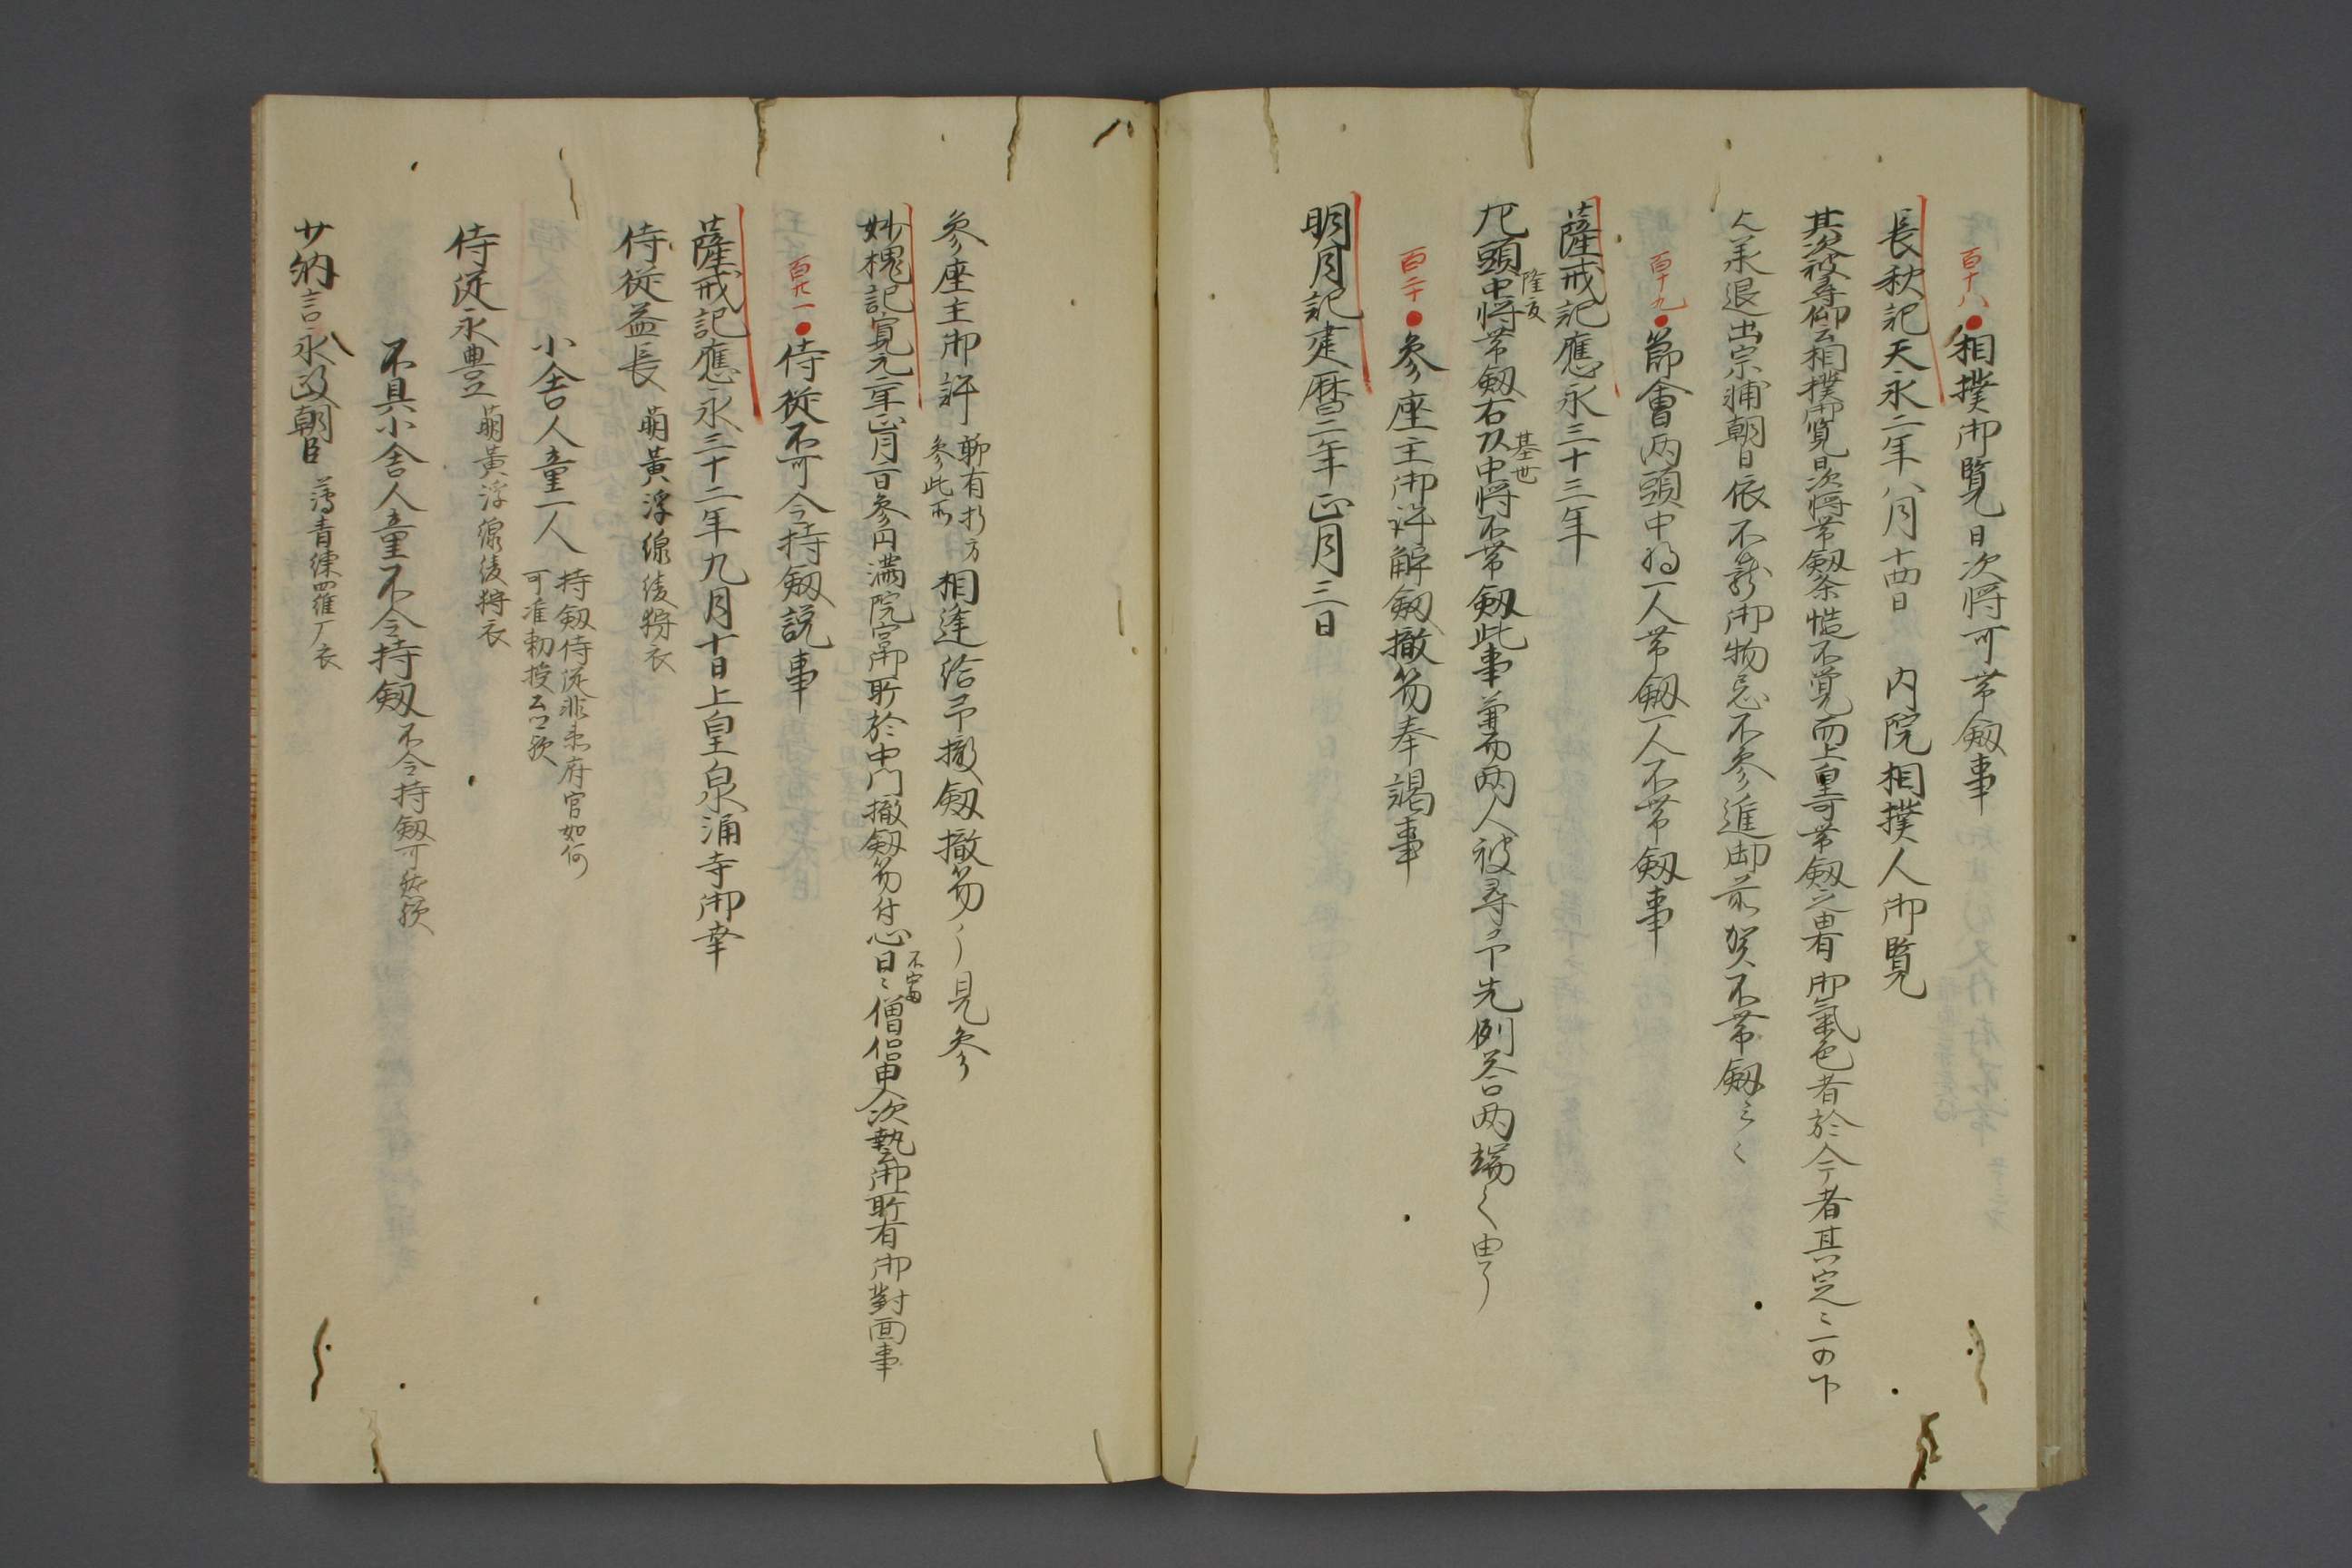 百十八●相撲御覧日次将可帯劔事
長秋記天永二年八月十四日　内院相撲人御覧
其次被尋仰云相撲御覧日次将帯劔条慥不覚而上皇可帯劔之由有御氣色者於今者其定
人々退出宗輔朝臣依不 御物忌不参進御前 不帯劔云々
百十九●節會両頭中将一人帯劔一人不帯劔事
薩戒記應永三十三年
頭中将隆夏帯劔右頭中将基世不帯劔此事兼而両人被尋予先例答両端之由了
百二十●参座主御許解劔撤笏奉謁事
明月記建暦二年正月三日
参座主御許聊有
参此所
相逢給予撤劔撤笏 見参
妙槐記寛元二年正月二日参円満院宮御所於中門撤劔笏付 僧侶 次 御所有御對面事
百廿一●侍従不可令持劔説事
薩戒記應永三十二年九月十日上皇泉涌寺御幸
侍従益長　萌黄浮線綾狩衣
小舎人童一人　持劔侍従非 府官如何
可准勅授 欤
侍従永豊　萌黄浮線綾狩衣
不具小舎人童不令持劔　不令持劔可然欤
少納言永政朝臣　薄青 衣